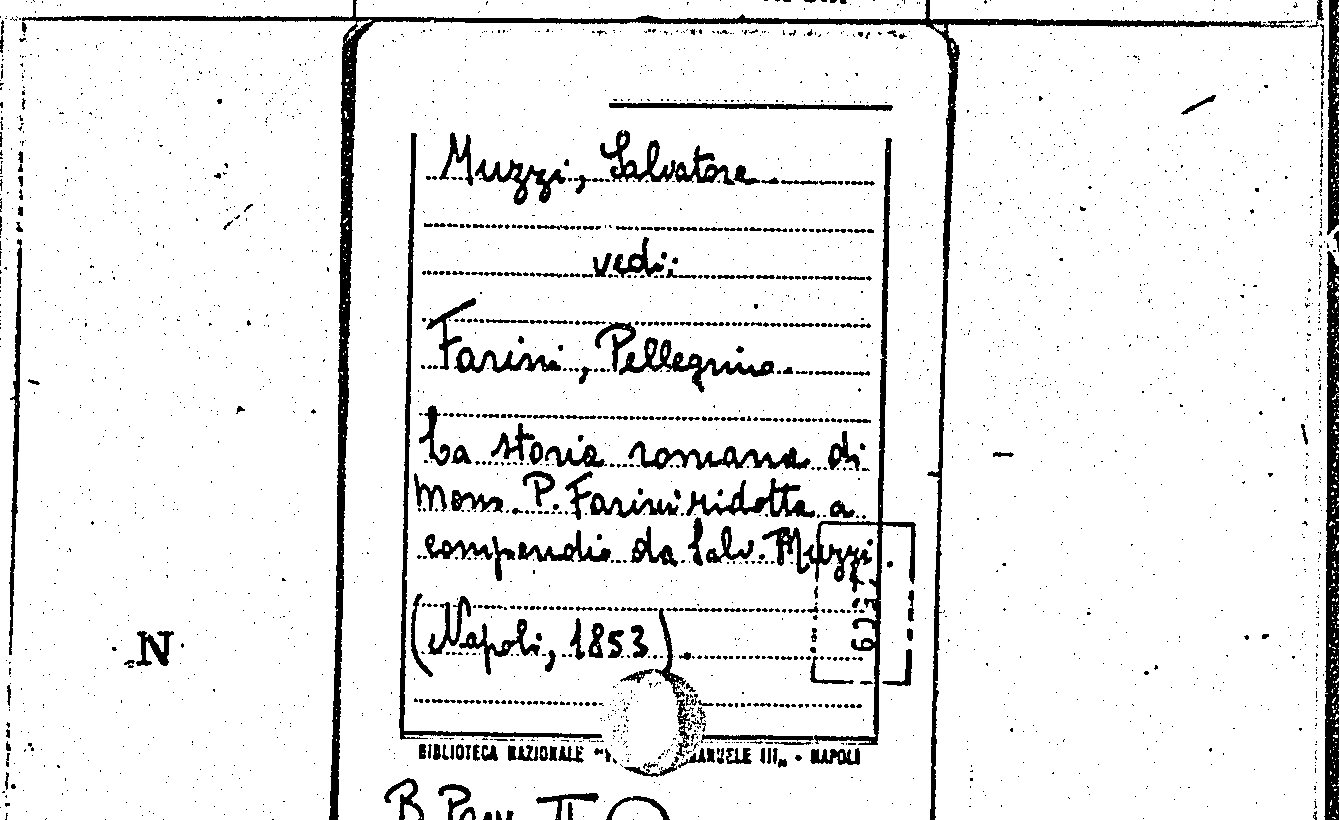 Muzzi, Salvatore.
vedi:
Farini, Pellegrino.
La storia romana di
Mons. P. Farini ridotta a
compendio da Salv. Muzzi.
(Napoli, 1853).
N
BIBLIOTECA NAZIONALE "V ANUELE III„ - NAPOLI
B. Prov. II